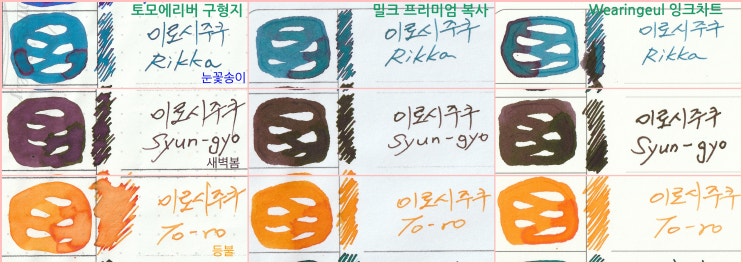 토모에리버 구형지
밀크 프리미엄 복사
Wearingeul 잉크차트
이로시주쿠
Rikka
눈꽃송이
이로시주쿠
Rikka
이로시주쿠
Rikka
이로시주쿠
Syun-gyo
새벽봄
이로시주쿠
Syun-gyo
이로시주쿠
Syun-gyo
이로시주쿠
To-ro
등불
이로시주쿠
To-ro
이로시주쿠
To-ro